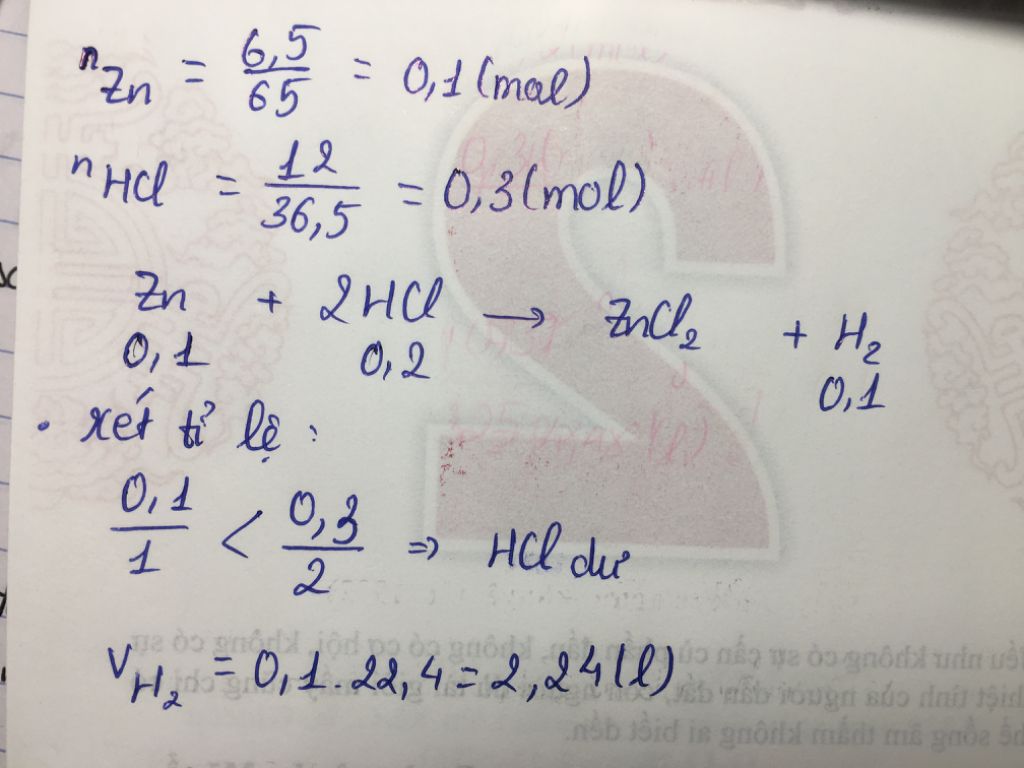 nZn = 6,5/65 = 0,1 (mol)
nHCl = 12/36,5 = 0,3 (mol)
Zn + 2HCl → ZnCl₂ + H₂
0,1 0,2 0,1
• xét tỉ lệ :
0,1/1 < 0,3/2 ⇒ HCl dư
VH₂ = 0,1 . 22,4 = 2,24 (l)